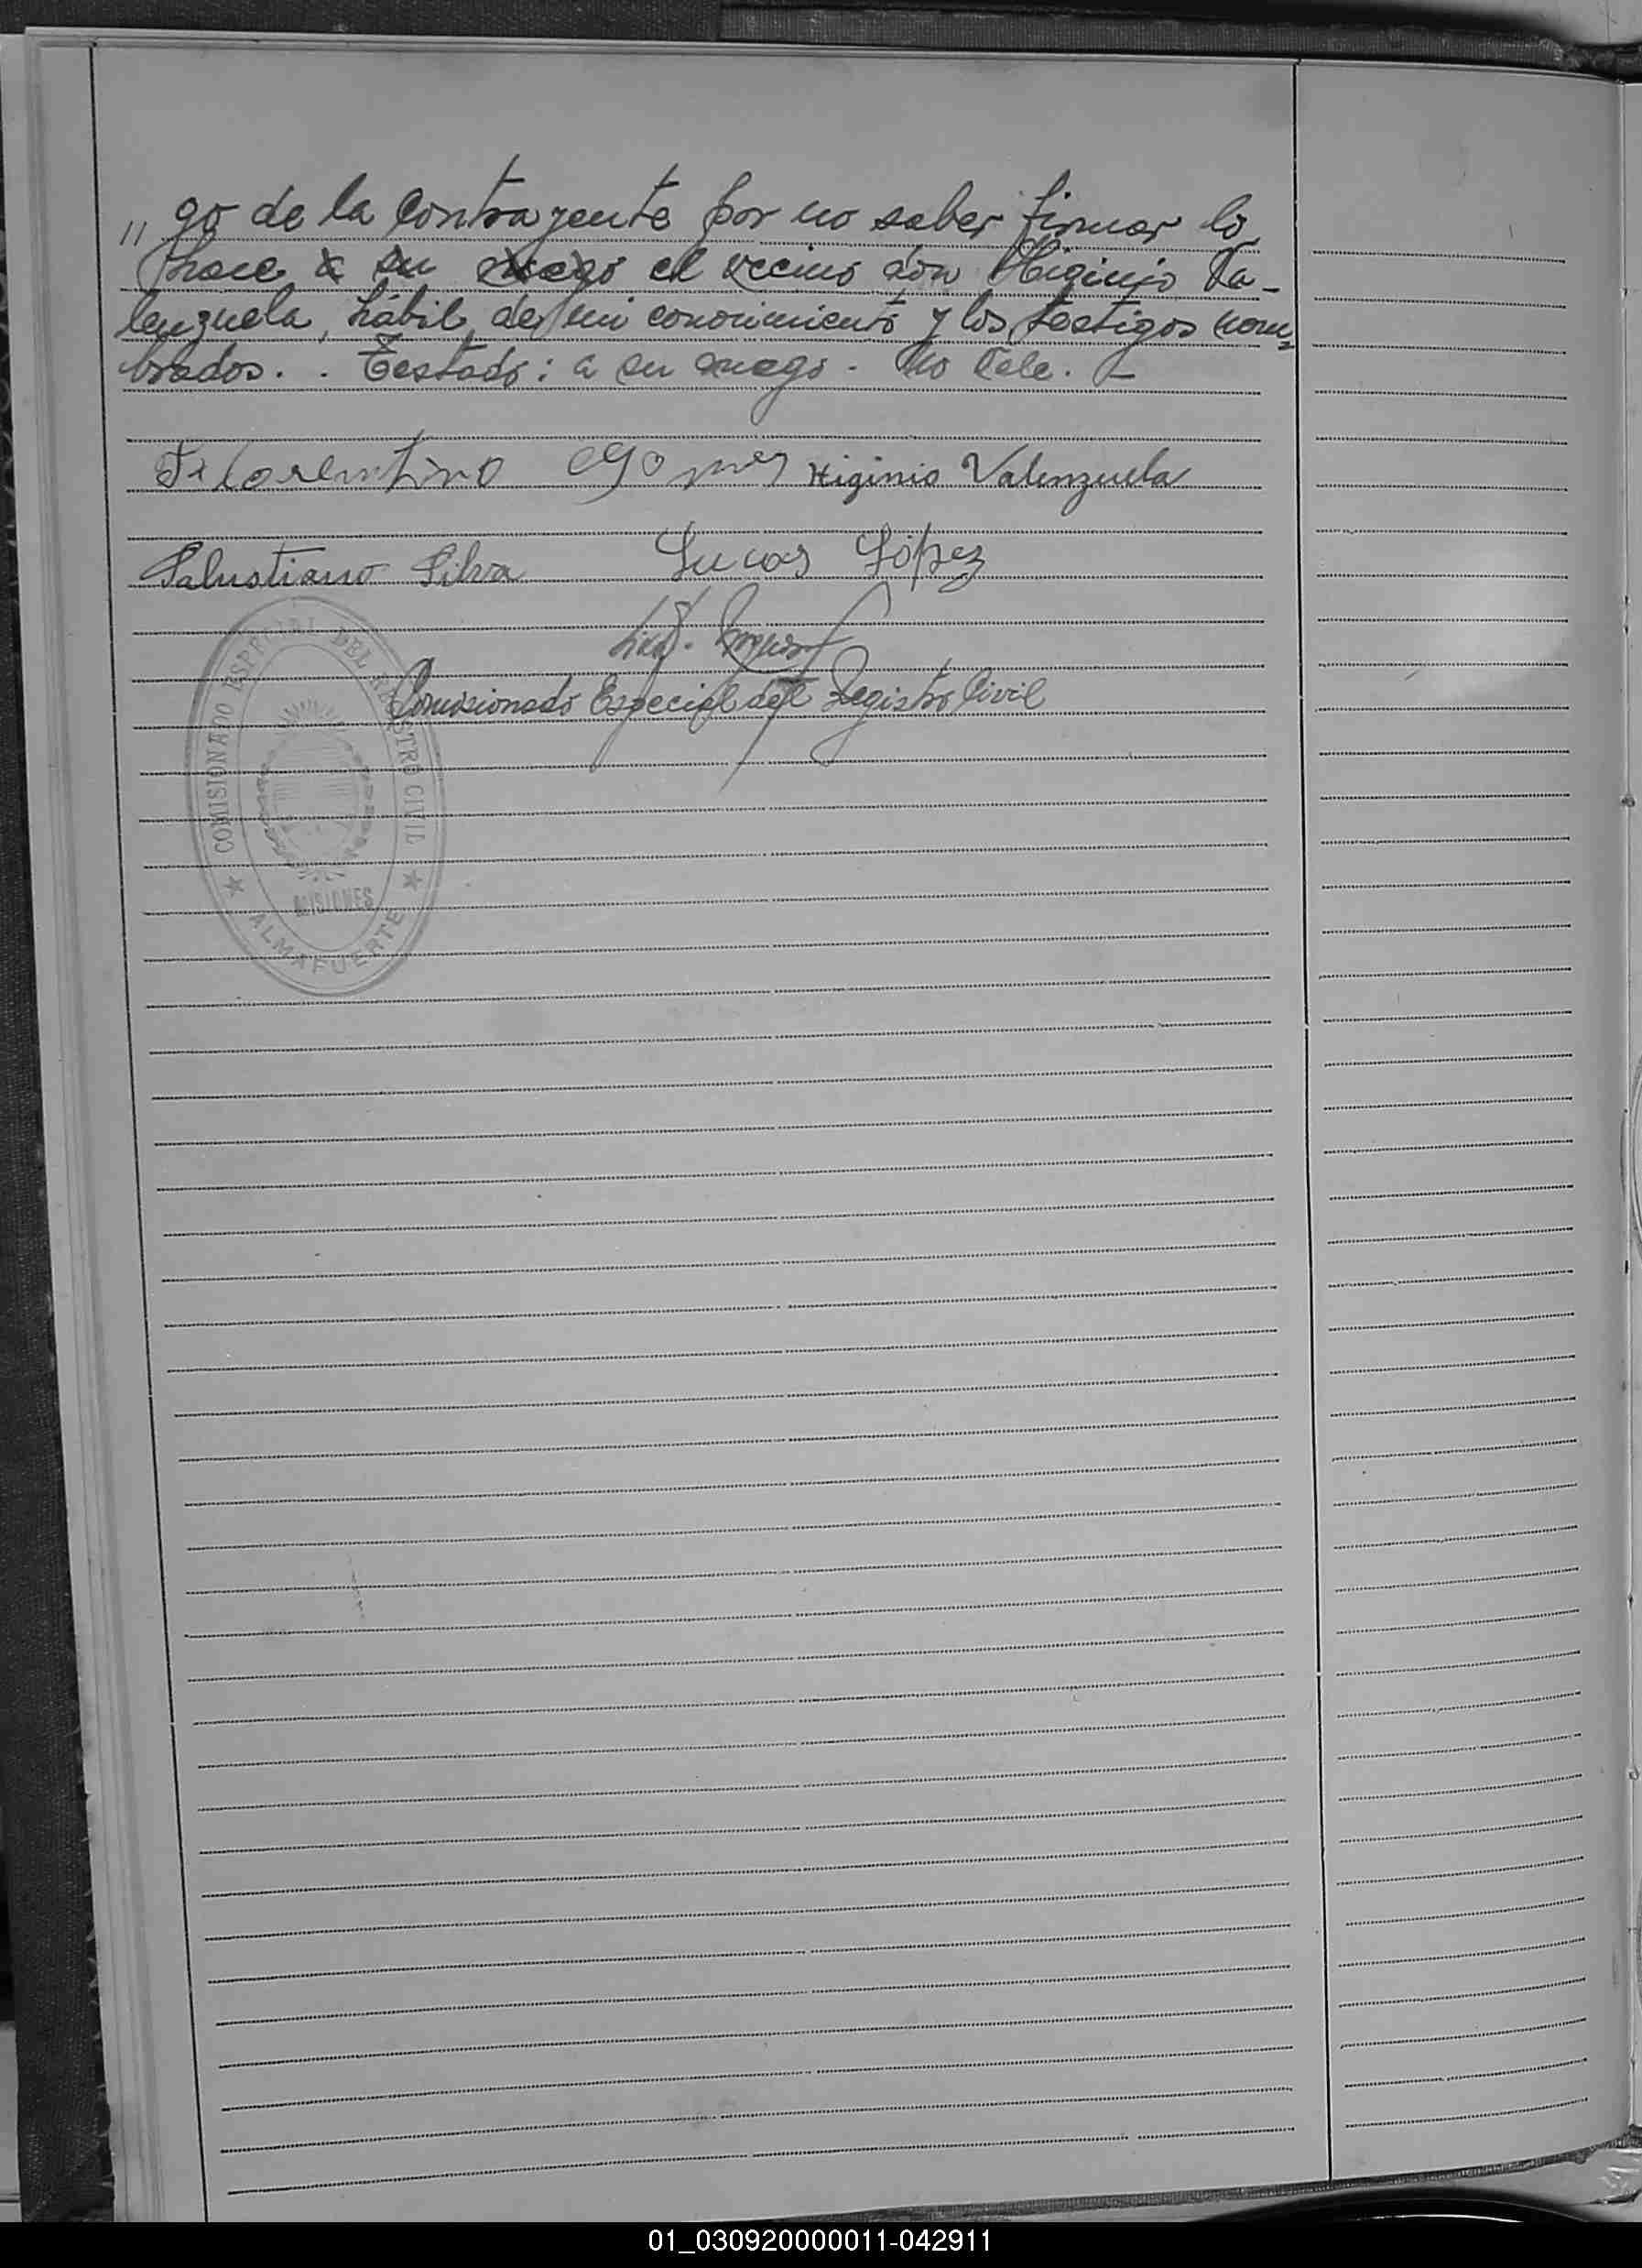 " go de la Contrayente por no saber firmar lo
hace a su ruego el vecino don Higinio Va-
lenzuela, hábil, de mi conocimiento y los testigos nom=
brados. . Testado: a su ruego - No Vale. -
Florentino Gomez Higinio Valenzuela
Salustiano Silva Lucas López
Comisionado Especial del Registro Civil
COMISIONADO ESPECIAL DEL REGISTRO CIVIL
MISIONES
★ ALMAFUERTE ★
01_030920000011-042911